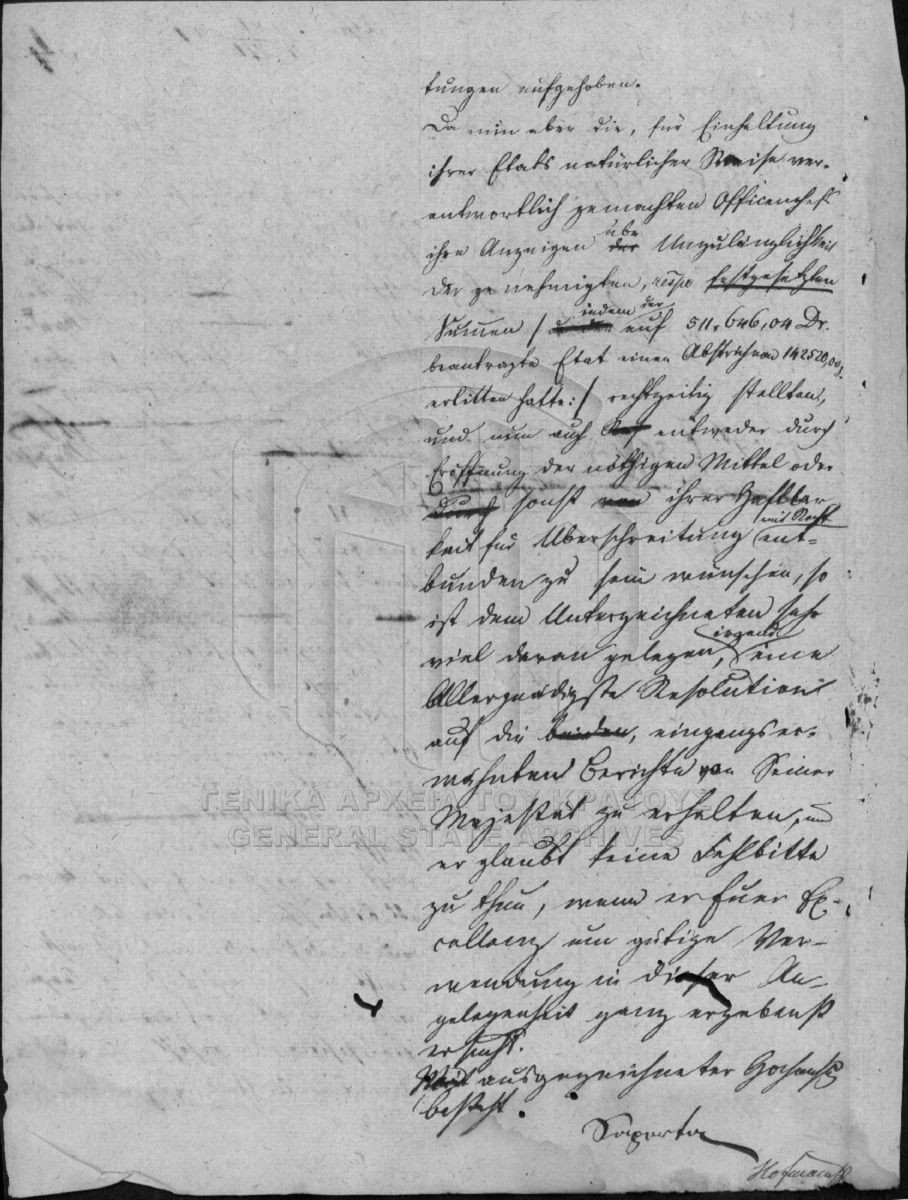 tungen aufgehoben.
Da nun aber die, für Einhaltung
ihrer Etats natürlicher Weise ver-
antwortlich gemachten Officenchefs
ihre Anzeigen über Unzulänglichkeit
der genehmigten, respe festgesetzten
Summen /: indem der auf 511,646,04 Dr.
beantragte Etat einen Abstrich von 142520,00
erlitten hatte :/ rechtzeitig stellten,
und nun auch entweder durch
Eröffnung der nöthigen Mittel oder
sonst ihrer Haftbar
keit für Überschreitung mit Recht ent-
bunden zu sein wünschen, so
ist dem Unterzeichneten sehr
viel daran gelegen, irgend eine
Allergnädigste Resolution
auf die beiden, eingangser-
wähnten Berichte von Seiner
Majestät zu erhalten, und
er glaubt keine Fehlbitte
zu thun, wenn er Euer Ex-
cellenz um gütige Ver-
wendung in dieser An-
gelegenheit ganz ergebenst
ersucht.
Mit ausgezeichneter Hochacht
besteht.
Saporta
Hofmann
ΓΕΝΙΚΑ ΑΡΧΕΙΑ ΤΟΥ ΚΡΑΤΟΥΣ
GENERAL STATE ARCHIVES